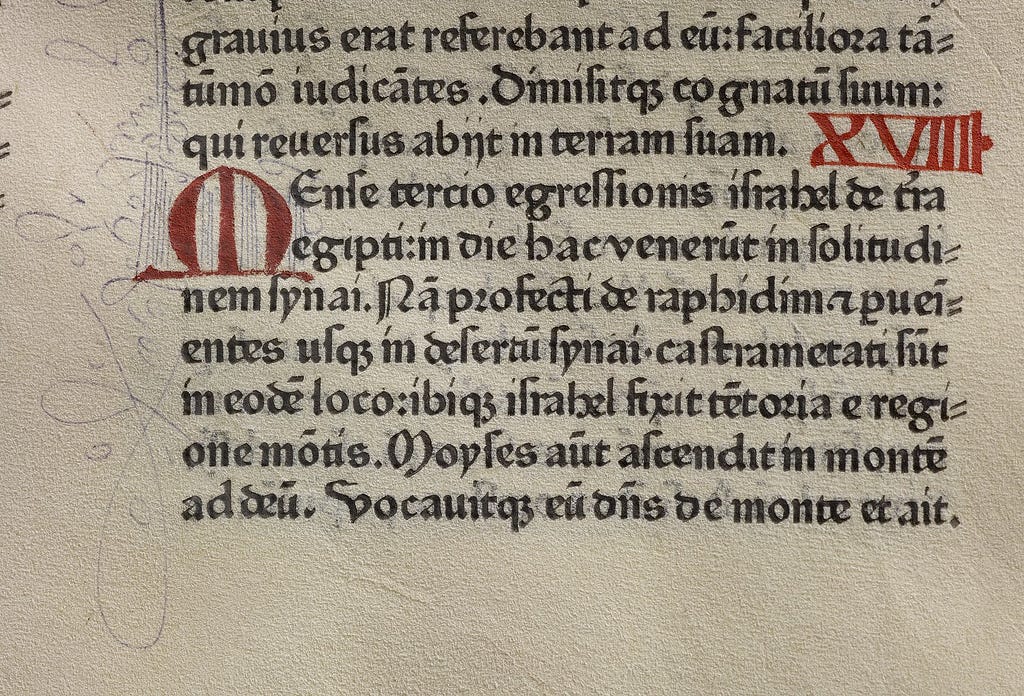 grauius erat referebant ad eū: faciliora tā=
tūmō iudicātes. Dimisitqꝫ cognatū suum:
qui reuersus abijt in terram suam. XVIIII
MEnse tercio egressionis israhel de tr̄a
egipti: in die hac venerūt in solitudi=
nem synai. Nā profecti de raphidim ⁊ ꝑuei̅=
entes usqꝫ in desertū synai. castrametati sūt
in eodē loco: ibiqꝫ israhel fixit tētoria e regi=
one mōtis. Moyses aūt ascendit in montē
ad deū. Vocauitqꝫ eū dn̄s de monte et ait.